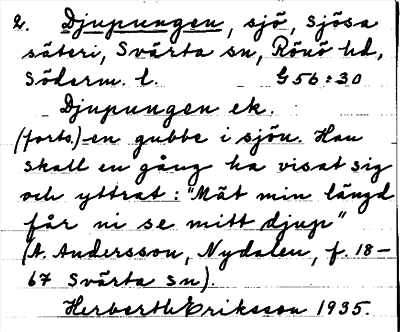 2. Djupungen, sjö, Sjösa
säteri, Svärta sn, Rönö hd,
Söderm. l. G56:30
Djupungen ek.
(forts.) en gubbe i sjön. Han
skall en gång ha visat sig
och yttrat: "Mät min längd
får ni se mitt djup"
(A. Andersson, Nydalen, f. 18-
67 Svärta sn).
Herberth Eriksson 1935.